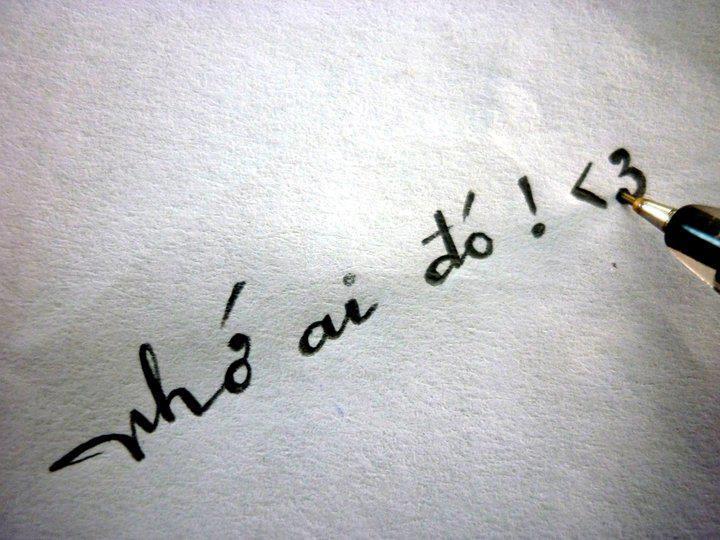 nhớ ai đó ! <3